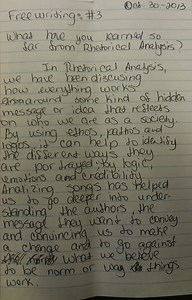 Oct-30-2013
Freewritings #3
What have you learned so
far from Rhetorical Analysis?
In Rhetorical Analysis,
we have been discusing
how everything works
around some kind of hidden
message or idea that reflects
on who we are as a society.
By using ethos, pathos and
logos, it can help to identify
the different ways they
are portrayed by logic,
emotions and credibility.
Analizing songs has helped
us to go deeper into under-
standing the authors, the
message they want to convey
and convincing us to make
a change and to go against
what we believe
to be norm or way things
work.